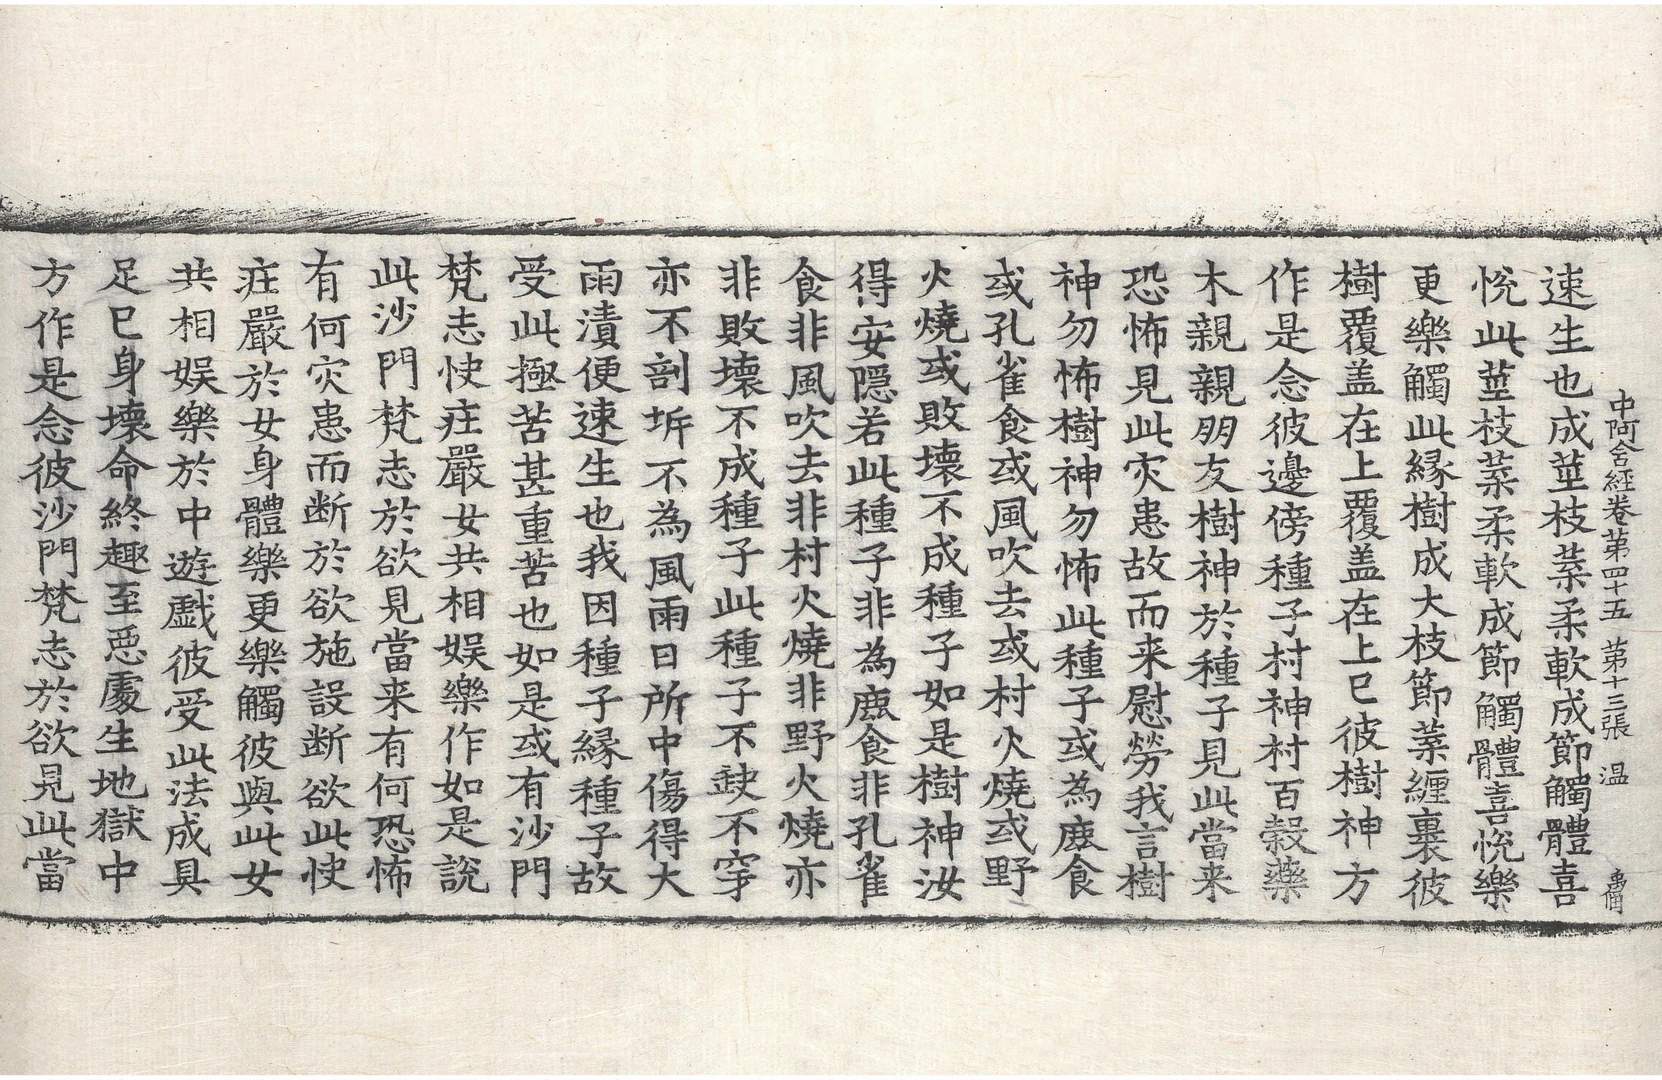 中阿含經卷第四十五 第十三張 温
速生也成莖枝葉柔軟成節觸體喜
悅此莖枝葉柔軟成節觸體喜悅樂
更樂觸此緣樹成大枝節葉纏裹彼
樹覆盖在上覆盖在上已彼樹神方
作是念彼邊傍種子村神村百穀藥
木親親朋友樹神於種子見此當来
恐怖見此灾患故而来慰勞我言樹
神勿怖樹神勿怖此種子或為鹿食
或孔雀食或風吹去或村火燒或野
火燒或敗壞不成種子如是樹神汝
得安隱若此種子非為鹿食非孔雀
食非風吹去非村火燒非野火燒亦
非敗壞不成種子此種子不缺不穿
亦不剖坼不為風雨日所中傷得大
雨漬便速生也我因種子緣種子故
受此極苦甚重苦也如是或有沙門
梵志快庄嚴女共相娛樂作如是說
此沙門梵志於欲見當来有何恐怖
有何灾患而断於欲施設断欲此快
庄嚴於女身體樂更樂觸彼與此女
共相娛樂於中遊戲彼受此法成具
足已身壞命終趣至惡處生地獄中
方作是念彼沙門梵志於欲見此當